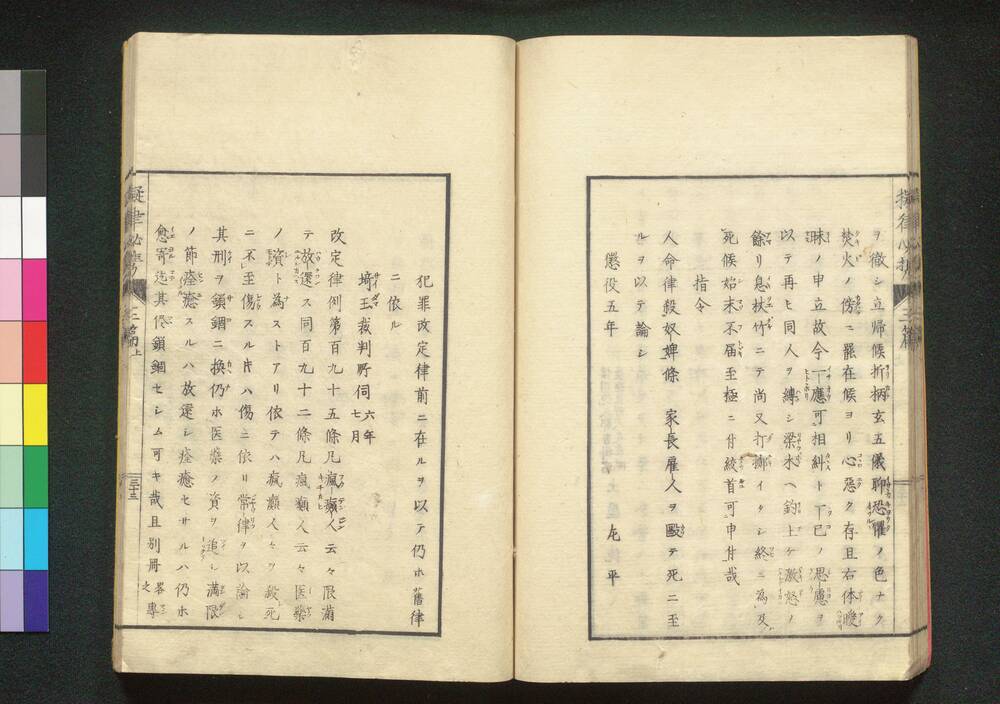 ヲ徴シ立帰候折柄玄五儀聊恐懼ノ色ナク
焚火ノ傍ニ罷在候ヨリ心惡ク存且右体曖
昧ノ申立故今一應可相糾ト一己ノ思慮ヲ
以テ再ヒ同人ヲ縛シ梁木ヘ釣上ケ激怒ノ
餘リ息杖竹ニテ尚又打擲イタシ終ニ為及
死候始末不届至極ニ付絞首可申付哉
指令
人命律殺奴婢條 家長雇人ヲ毆テ死ニ至
ルヲ以テ論シ
懲役五年 平
三篇
犯罪改定律前ニ在ルヲ以テ仍ホ舊律
ニ依ル
埼玉裁判所伺 六年七月
改定律例第百九十五條凡瘋癲人云々限滿
テ放還ス同百九十二條凡瘋癲人云々医藥
ノ資ト為ストアリ依テハ瘋癲人々ヲ殺死
ニ不至傷スル片ハ傷ニ依リ常律ヲ以論シ
其刑ヲ鎖錮ニ換仍ホ医藥ノ資ヲ追シ満限
ノ節痊癒スルハ放還シ痊癒セサルハ仍ホ
愈寄迄其侭鎖錮セシム可キ哉且別冊畧之專
擬律必携 三篇上 三十三